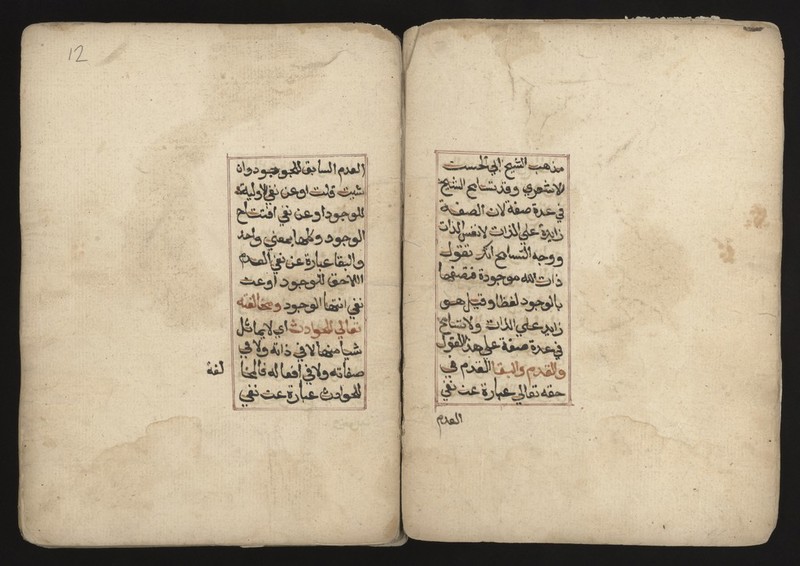 مذهب الشيخ ابي الحسن
الاشعري وقد تسامح الشيخ
في عدة صفة لان الصفة
زايدة على الذات لا نفس الذات
ووجه التسامح انك تقول
ذات الله موجودة فتصفها
بالوجود لفظا وقيل هو
زايد على الذات ولا تسامح
في عدة صفة على هذا القول
والقدم والبقا القدم في
حقه تعالي عبارة عن نفي
العدم
12
العدم السابق للوجود وان
شيت قلت او عن نفي الاولية
للوجود او عن نفي افتتاح
الوجود وكلها بمعني واحد
والبقا عبارة عن نفي العدم
اللاحق للوجود او عن
نفي انتها الوجود ومخالفته
تعالي للحوادث اي لا يماثل
شيا منها لا في ذاته ولا في
صفاته ولا في افعاله فالمخا
لفة
للحوادث عبارة عن نفي